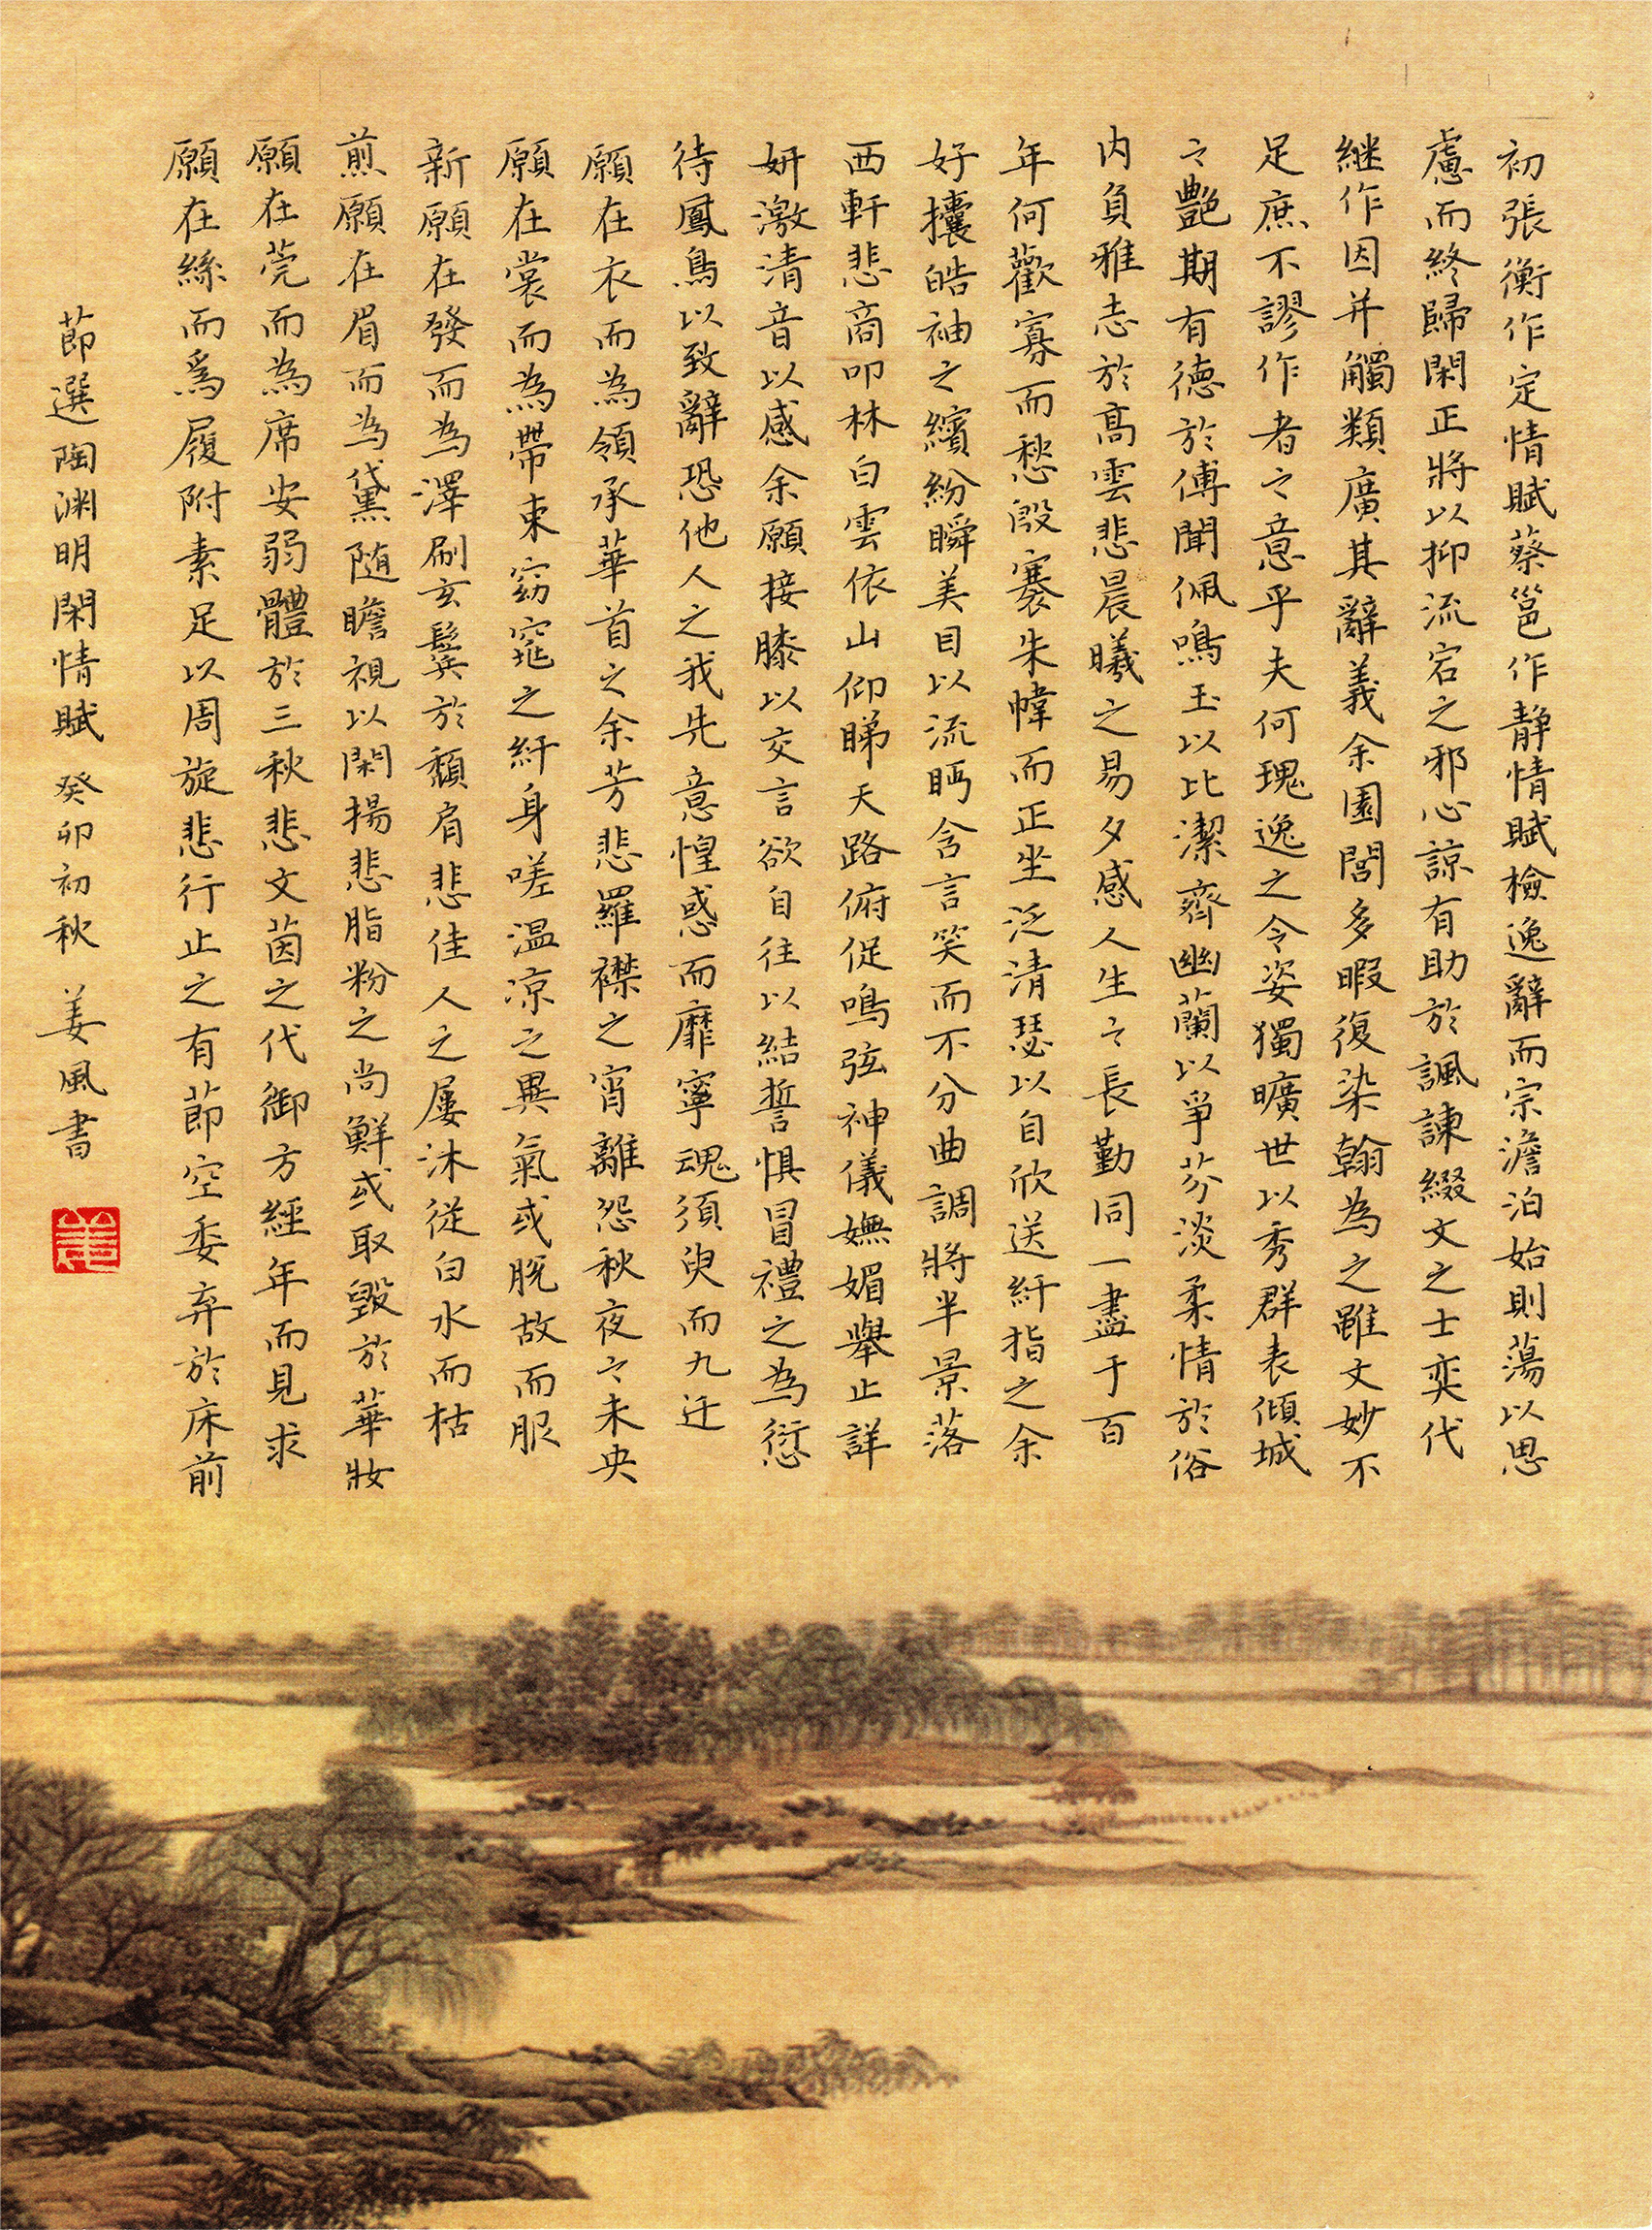 初張衡作定情賦蔡邕作静情賦檢逸辭而宗澹泊始則蕩以思
慮而終歸閑正將以抑流宕之邪心諒有助於諷諫綴文之士奕代
継作因并觸類廣其辭義余園閭多暇復染翰為之雖文妙不
足庶不謬作者之意乎夫何瑰逸之令姿獨曠世以秀群表傾城
之艷期有德於傅聞佩鳴玉以比潔齊幽蘭以爭芬淡柔情於俗
内負雅志於高雲悲晨曦之易夕感人生之長勤同一盡于百
年何歡寡而愁殷褰朱幃而正坐泛清瑟以自欣送纤指之余
好攘皓袖之繽紛瞬美目以流眄含言笑而不分曲調將半景落
西軒悲商叩林白雲依山仰睇天路俯促鳴弦神儀嫵媚舉止詳
妍激清音以感余願接膝以交言欲自往以結誓惧冒禮之為愆
待鳳鳥以致辭恐他人之我先意惶惑而靡寧魂須臾而九迁
願在衣而為領承華首之余芳悲羅襟之宵離怨秋夜之未央
願在裳而為帶束窈窕之纤身嗟温凉之異氣或脱故而服
新願在發而為澤刷玄鬓於頹肩悲佳人之屢沐從白水而枯
煎願在眉而為黛随瞻視以閑揚悲脂粉之尚鮮或取毀於華妝
願在莞而為席安弱體於三秋悲文茵之代御方經年而見求
願在絲而爲履附素足以周旋悲行止之有節空委弃於床前
節選陶渊明閑情賦 癸卯初秋 姜風書
姜